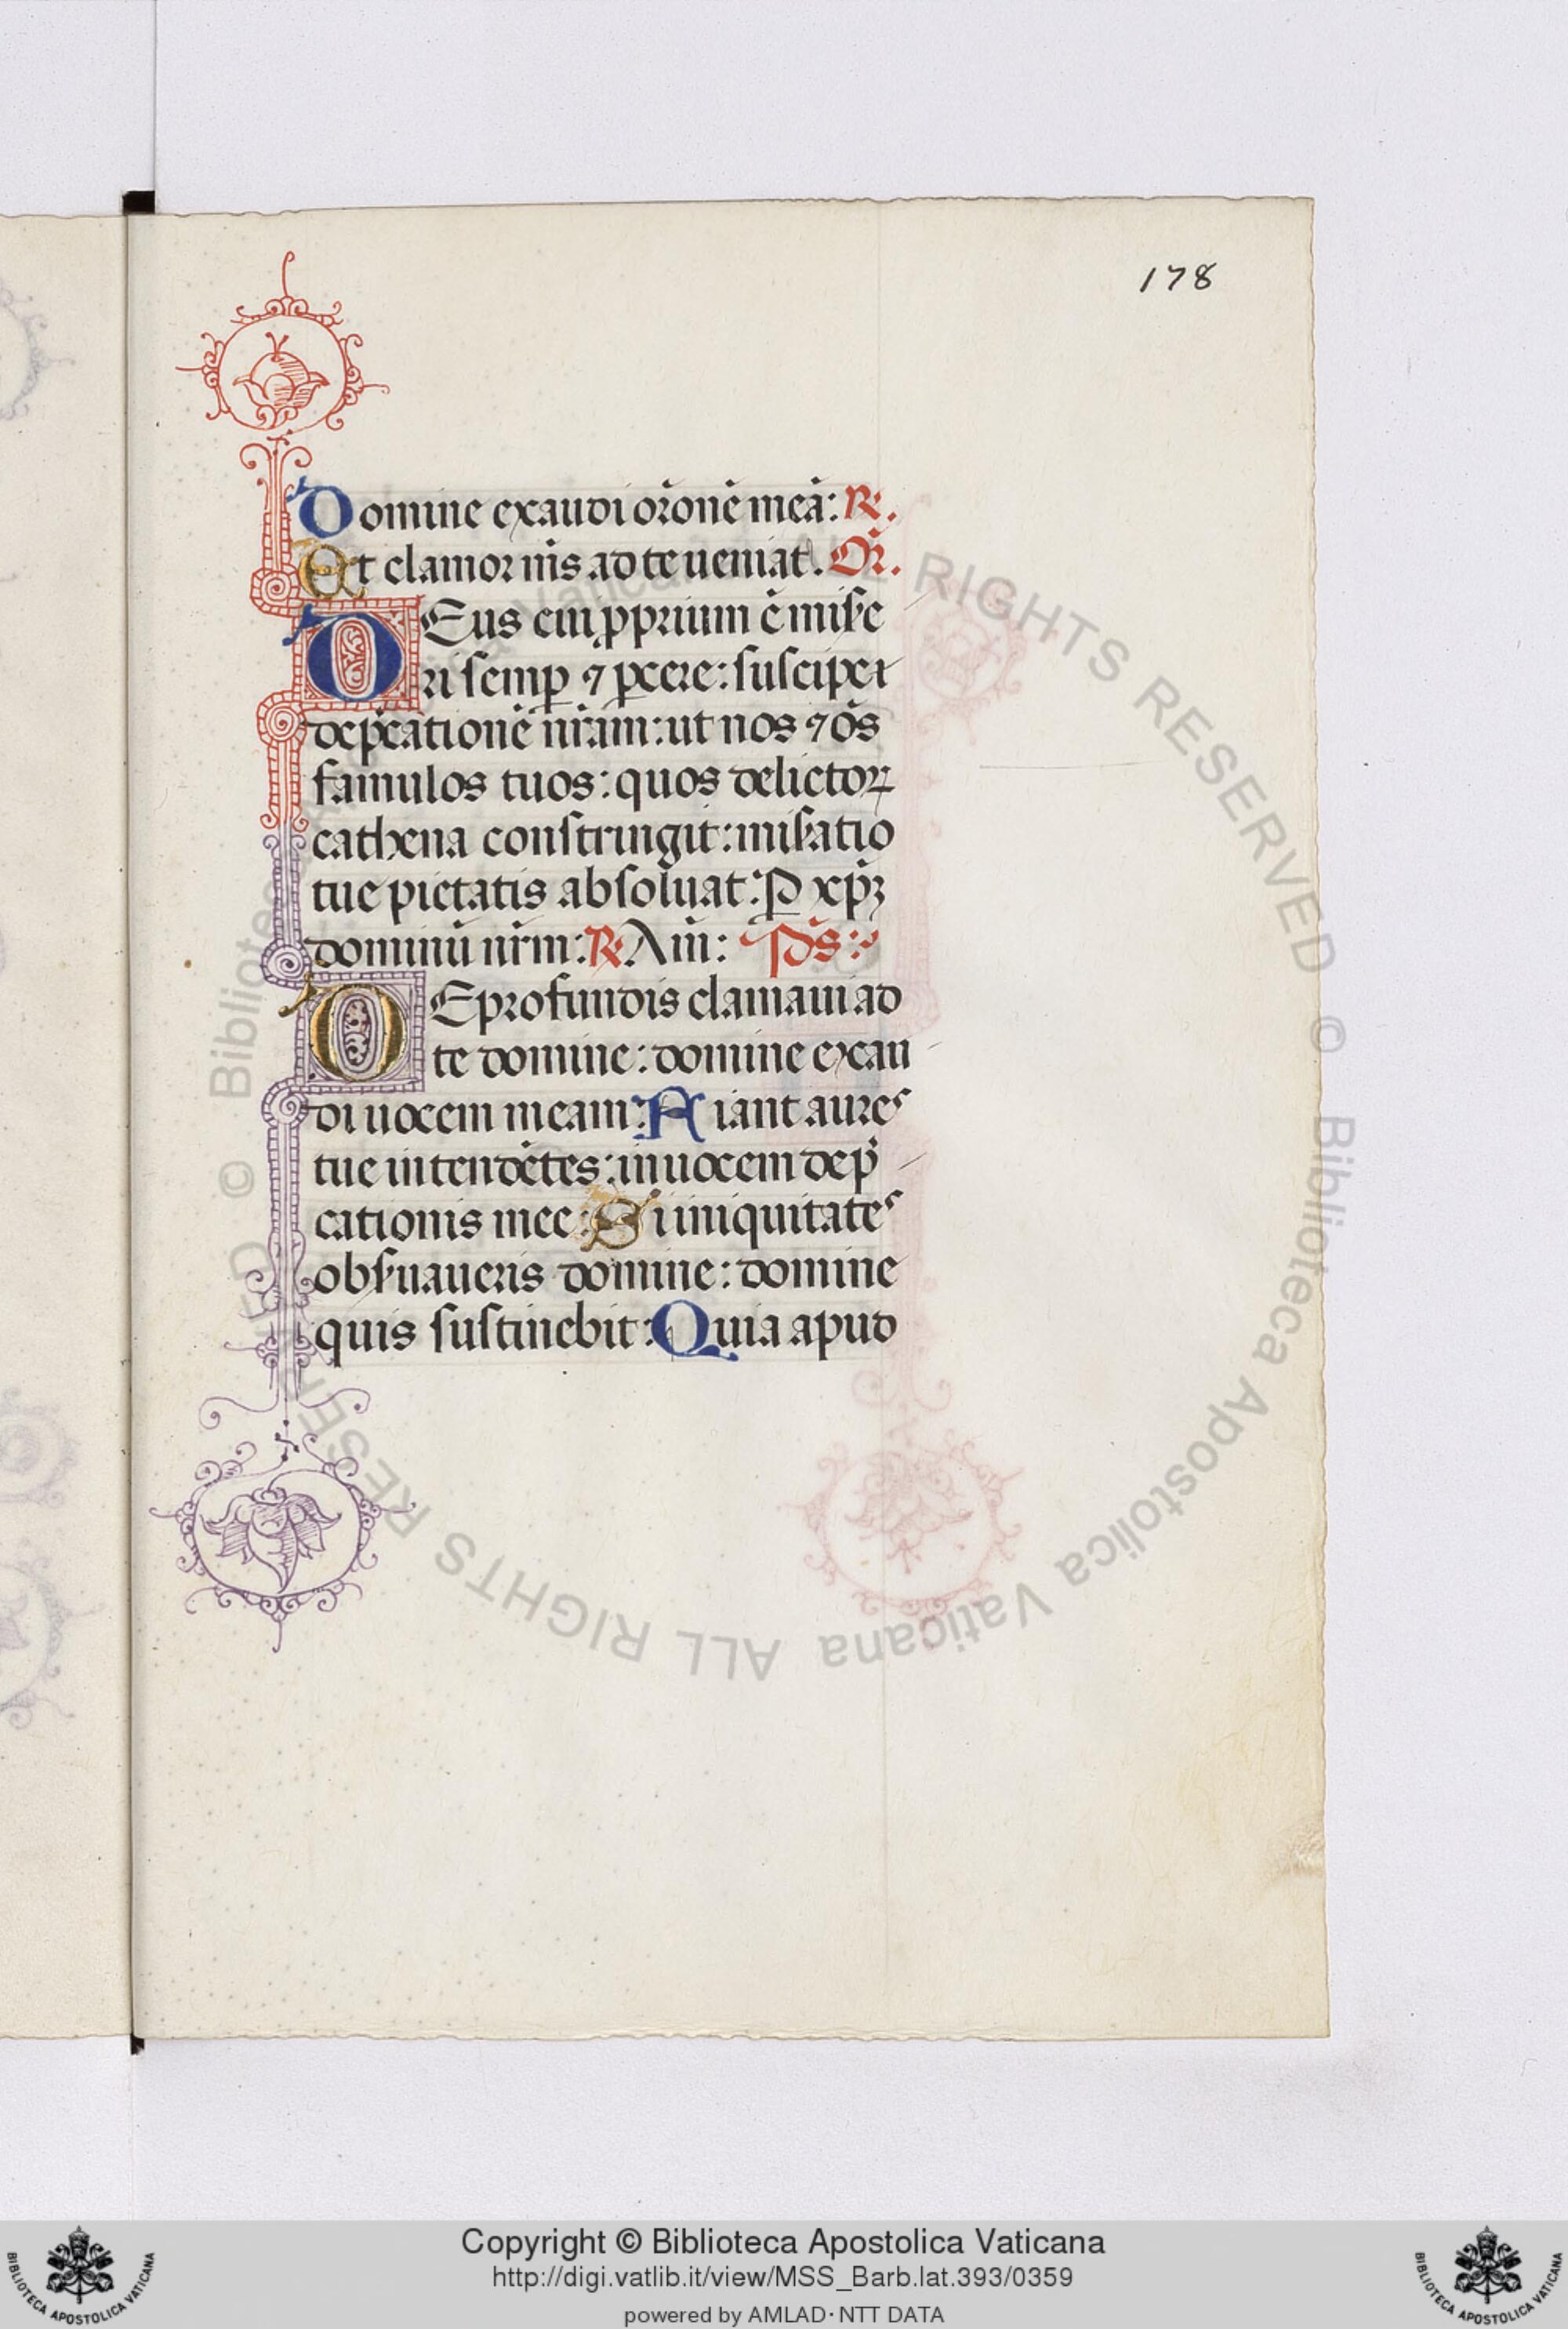 178
Domine exaudi or̃onē meã: R̃.
Et clamor m̃s ad te ueniat. Or̃.
DEus cui ꝓprium ē mise
ri semꝑ ⁊ ꝑcere: suscipe
dep̃cationē nr̃am: ut nos ⁊ oẽs
famulos tuos: quos delictoꝝ
cathena constringit: mis̃atio
tue pietatis absoluat: P xp̃ꝫ
dominū nr̃m: R̃. Am̃: Ps̃:
DE profundis clamaui ad
te domine: domine exau
di uocem meam: Fiant aures
tue intendẽtes: in uocem dep̃
cationis mee: Si iniquitates
obs̃uaueris domine: domine
quis sustinebit: Quia apud
© Biblioteca Apostolica Vaticana ALL RIGHTS RESERVED © Biblioteca Apostolica Vaticana ALL RIGHTS RESERVED
Copyright © Biblioteca Apostolica Vaticana
http://digi.vatlib.it/view/MSS_Barb.lat.393/0359
powered by AMLAD·NTT DATA
BIBLIOTECA APOSTOLICA VATICANA
BIBLIOTECA APOSTOLICA VATICANA